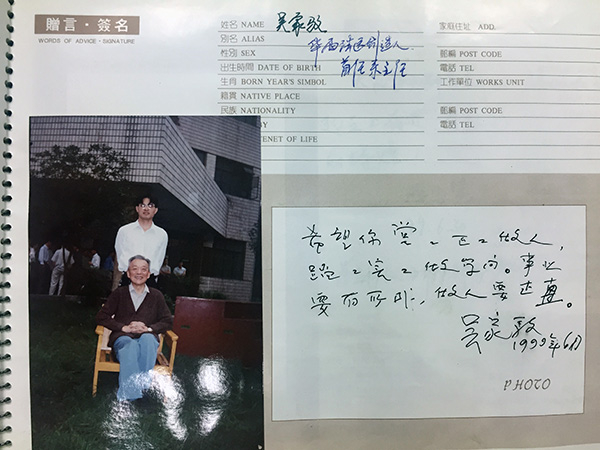 贈言·簽名
WORDS OF ADVICE · SIGNATURE
姓名 NAME 吴家
別名 ALIAS
华西法医创造人
性別 SEX
出生時間 DATE OF BIRTH
首任系主任
生肖 BORN YEAR'S SIMBOL
籍貫 NATIVE PLACE
民族 NATIONALITY
BY
TENET OF LIFE
家庭住址 ADD.
郵編 POST CODE
電話 TEL
工作單位 WORKS UNIT
郵編 POST CODE
電話 TEL
希望你堂二正二做人，
踏二实二做学问。事业
要有所，做人要正直。
吴家
1999年6月
PHOTO